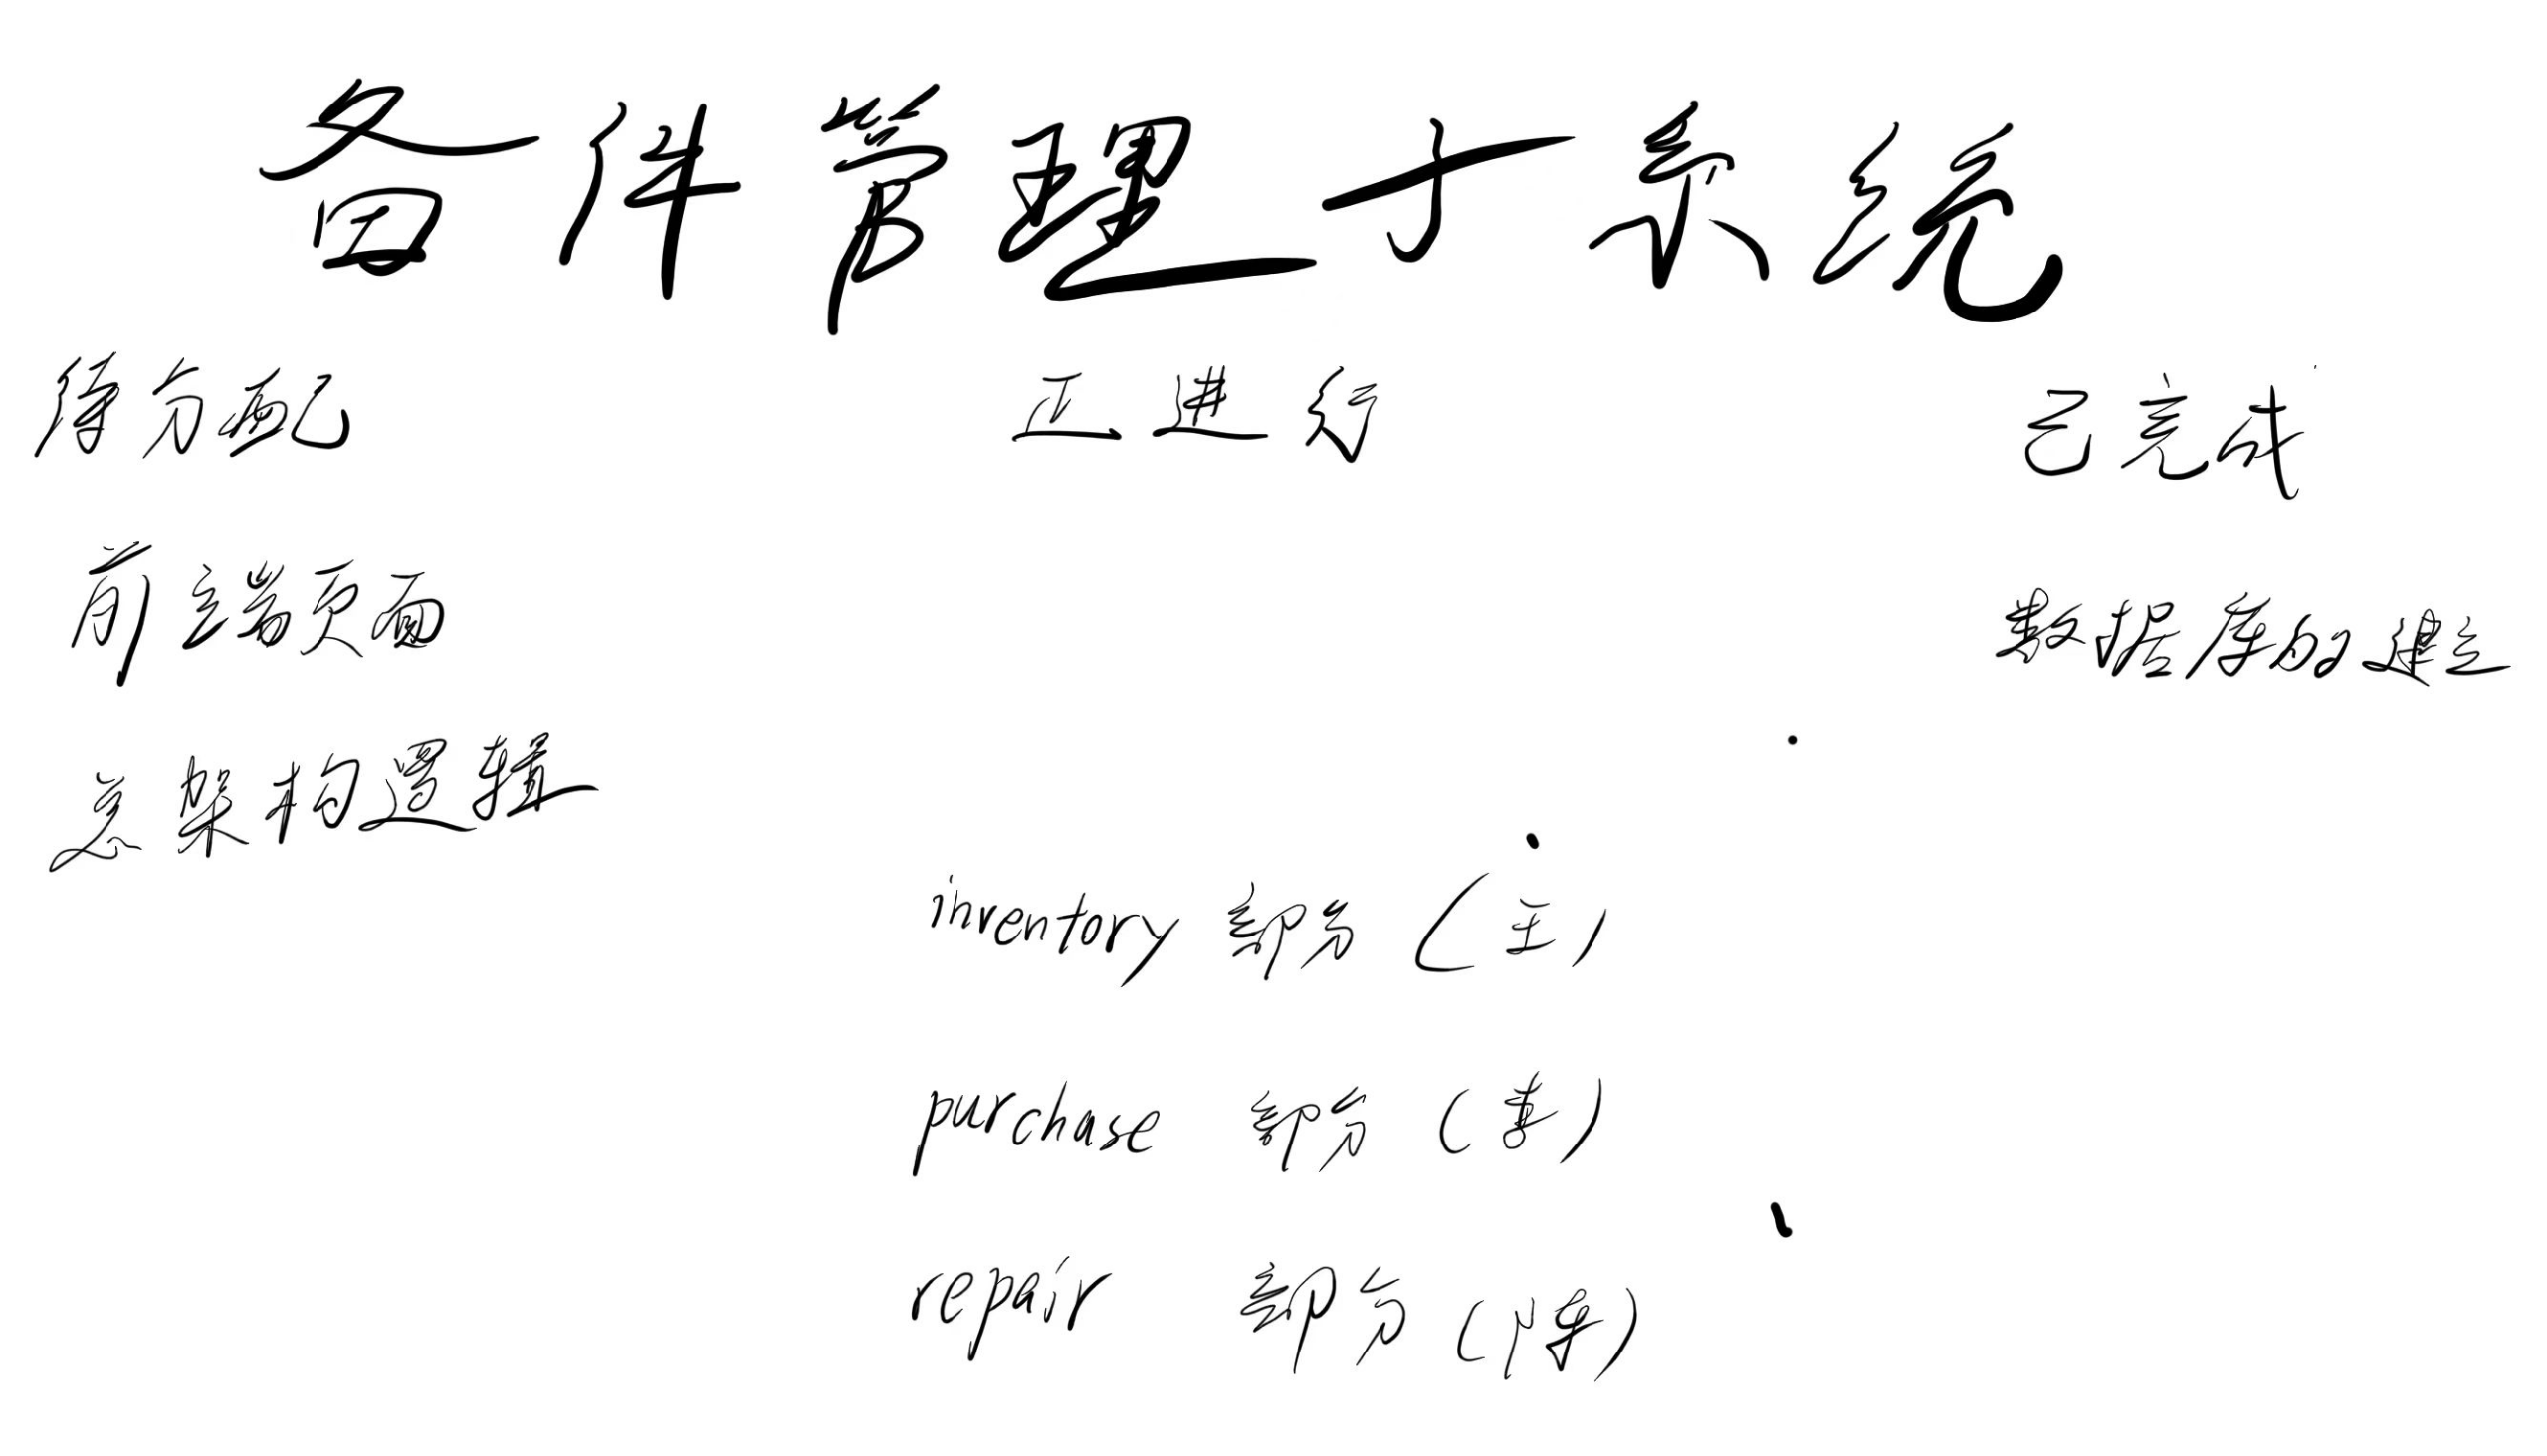 备件管理子系统
待分配 正进行 已完成
前端页面 数据库的建立
总架构逻辑
inventory 部分 (王)
purchase 部分 (李)
repair 部分 (陈)